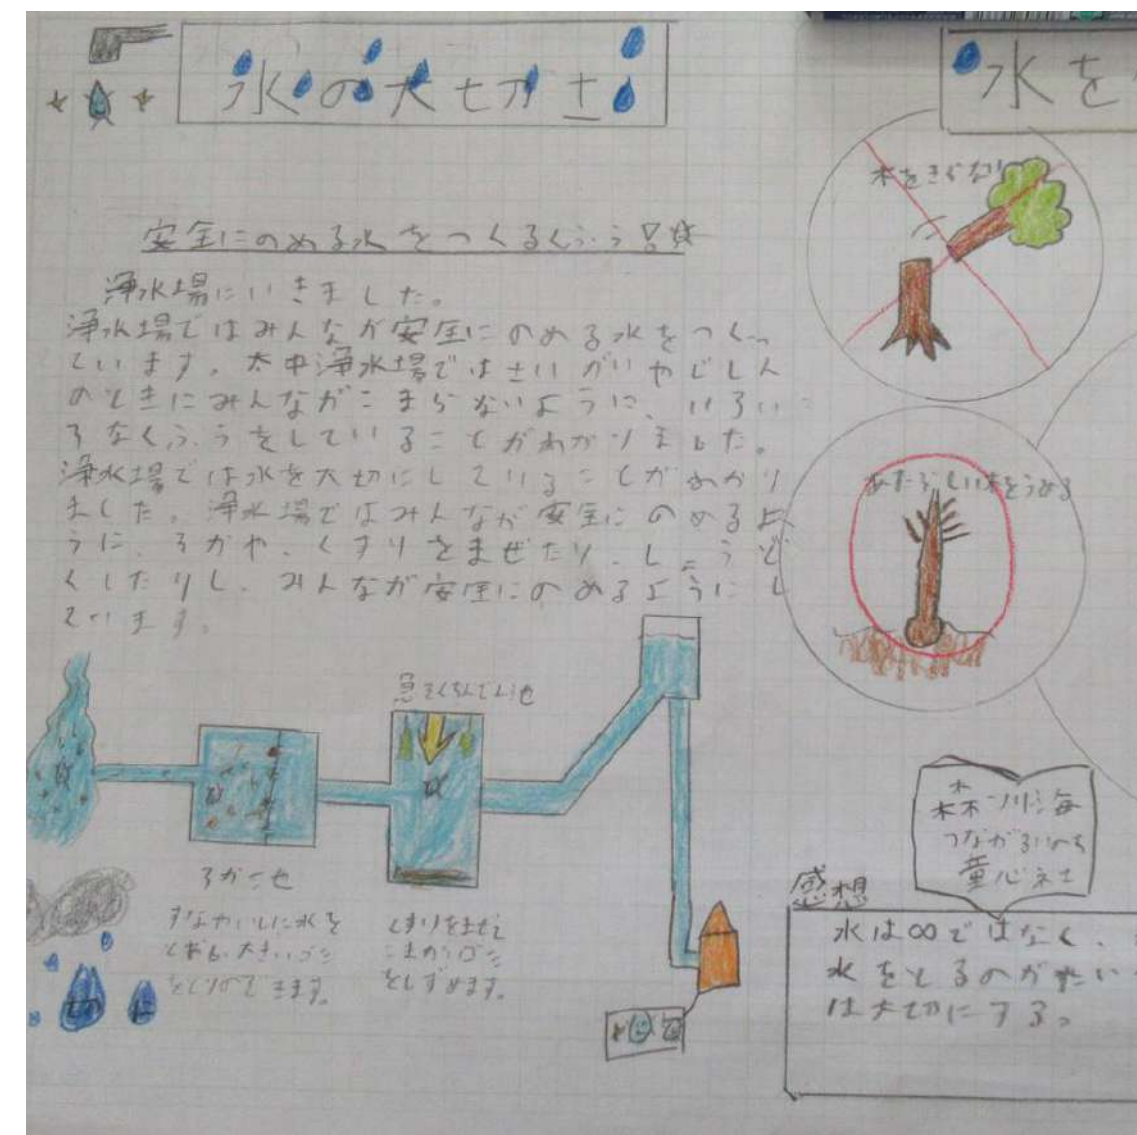 水の大切さ
安全にのめる水をつくるくふう
浄水場にいきました。
浄水場ではみんなが安全にのめる水をつくっ
ています。大中浄水場ではさいがいやじしん
のときにみんながこまらないように、いろい
ろなくふうをしていることがわかりました。
浄水場では水を大切にしていることがわかり
ました。浄水場ではみんなが安全にのめるよ
うに、ろかや、くすりをまぜたり、しょうど
くしたりし、みんなが安全にのめるようにし
ています。
急そくちんでん池
ろかこ池
すなやいしに水を
とおし、大きいゴミ
をとりのぞきます。
くすりをまぜて
こまかいゴミ
をしずめます。
水を
木をきらない
あたらしい木をうめる
森川海
つながるいのち
童心社
感想
水は∞ではなく、
水をとるのがたい
は大切にする。